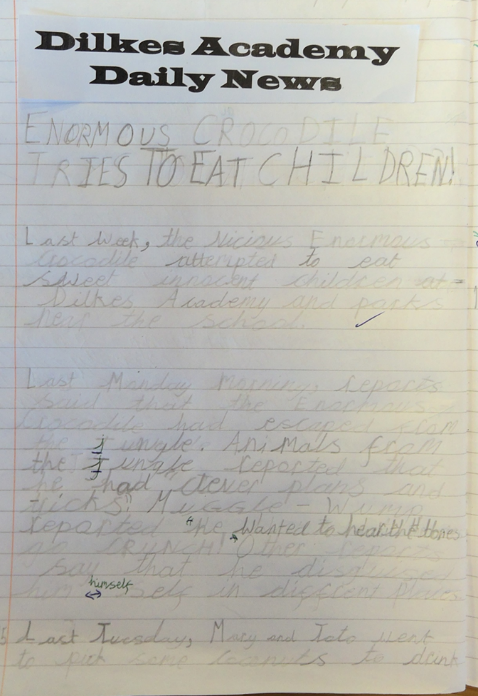 Dilkes Academy
Daily News
ENORMOUS CROCODILE
TRIES TO EAT CHILDREN!
Last week, the vicious Enormous
Crocodile attempted to eat
sweet innocent children at
Dilkes Academy and parks
near the school.
Last Monday Morning, reports
said that the Enormous
Crocodile had escaped from
the Jungle. Animals from
the Jungle reported that
he had clever plans and
tricks. Muggle-Wump
reported "he Wanted to hear the bones
go CRUNCH! Other reports
say that he
himself
self in different places
Last Tuesday, Mary and Toto went
to pick some coconuts to drink